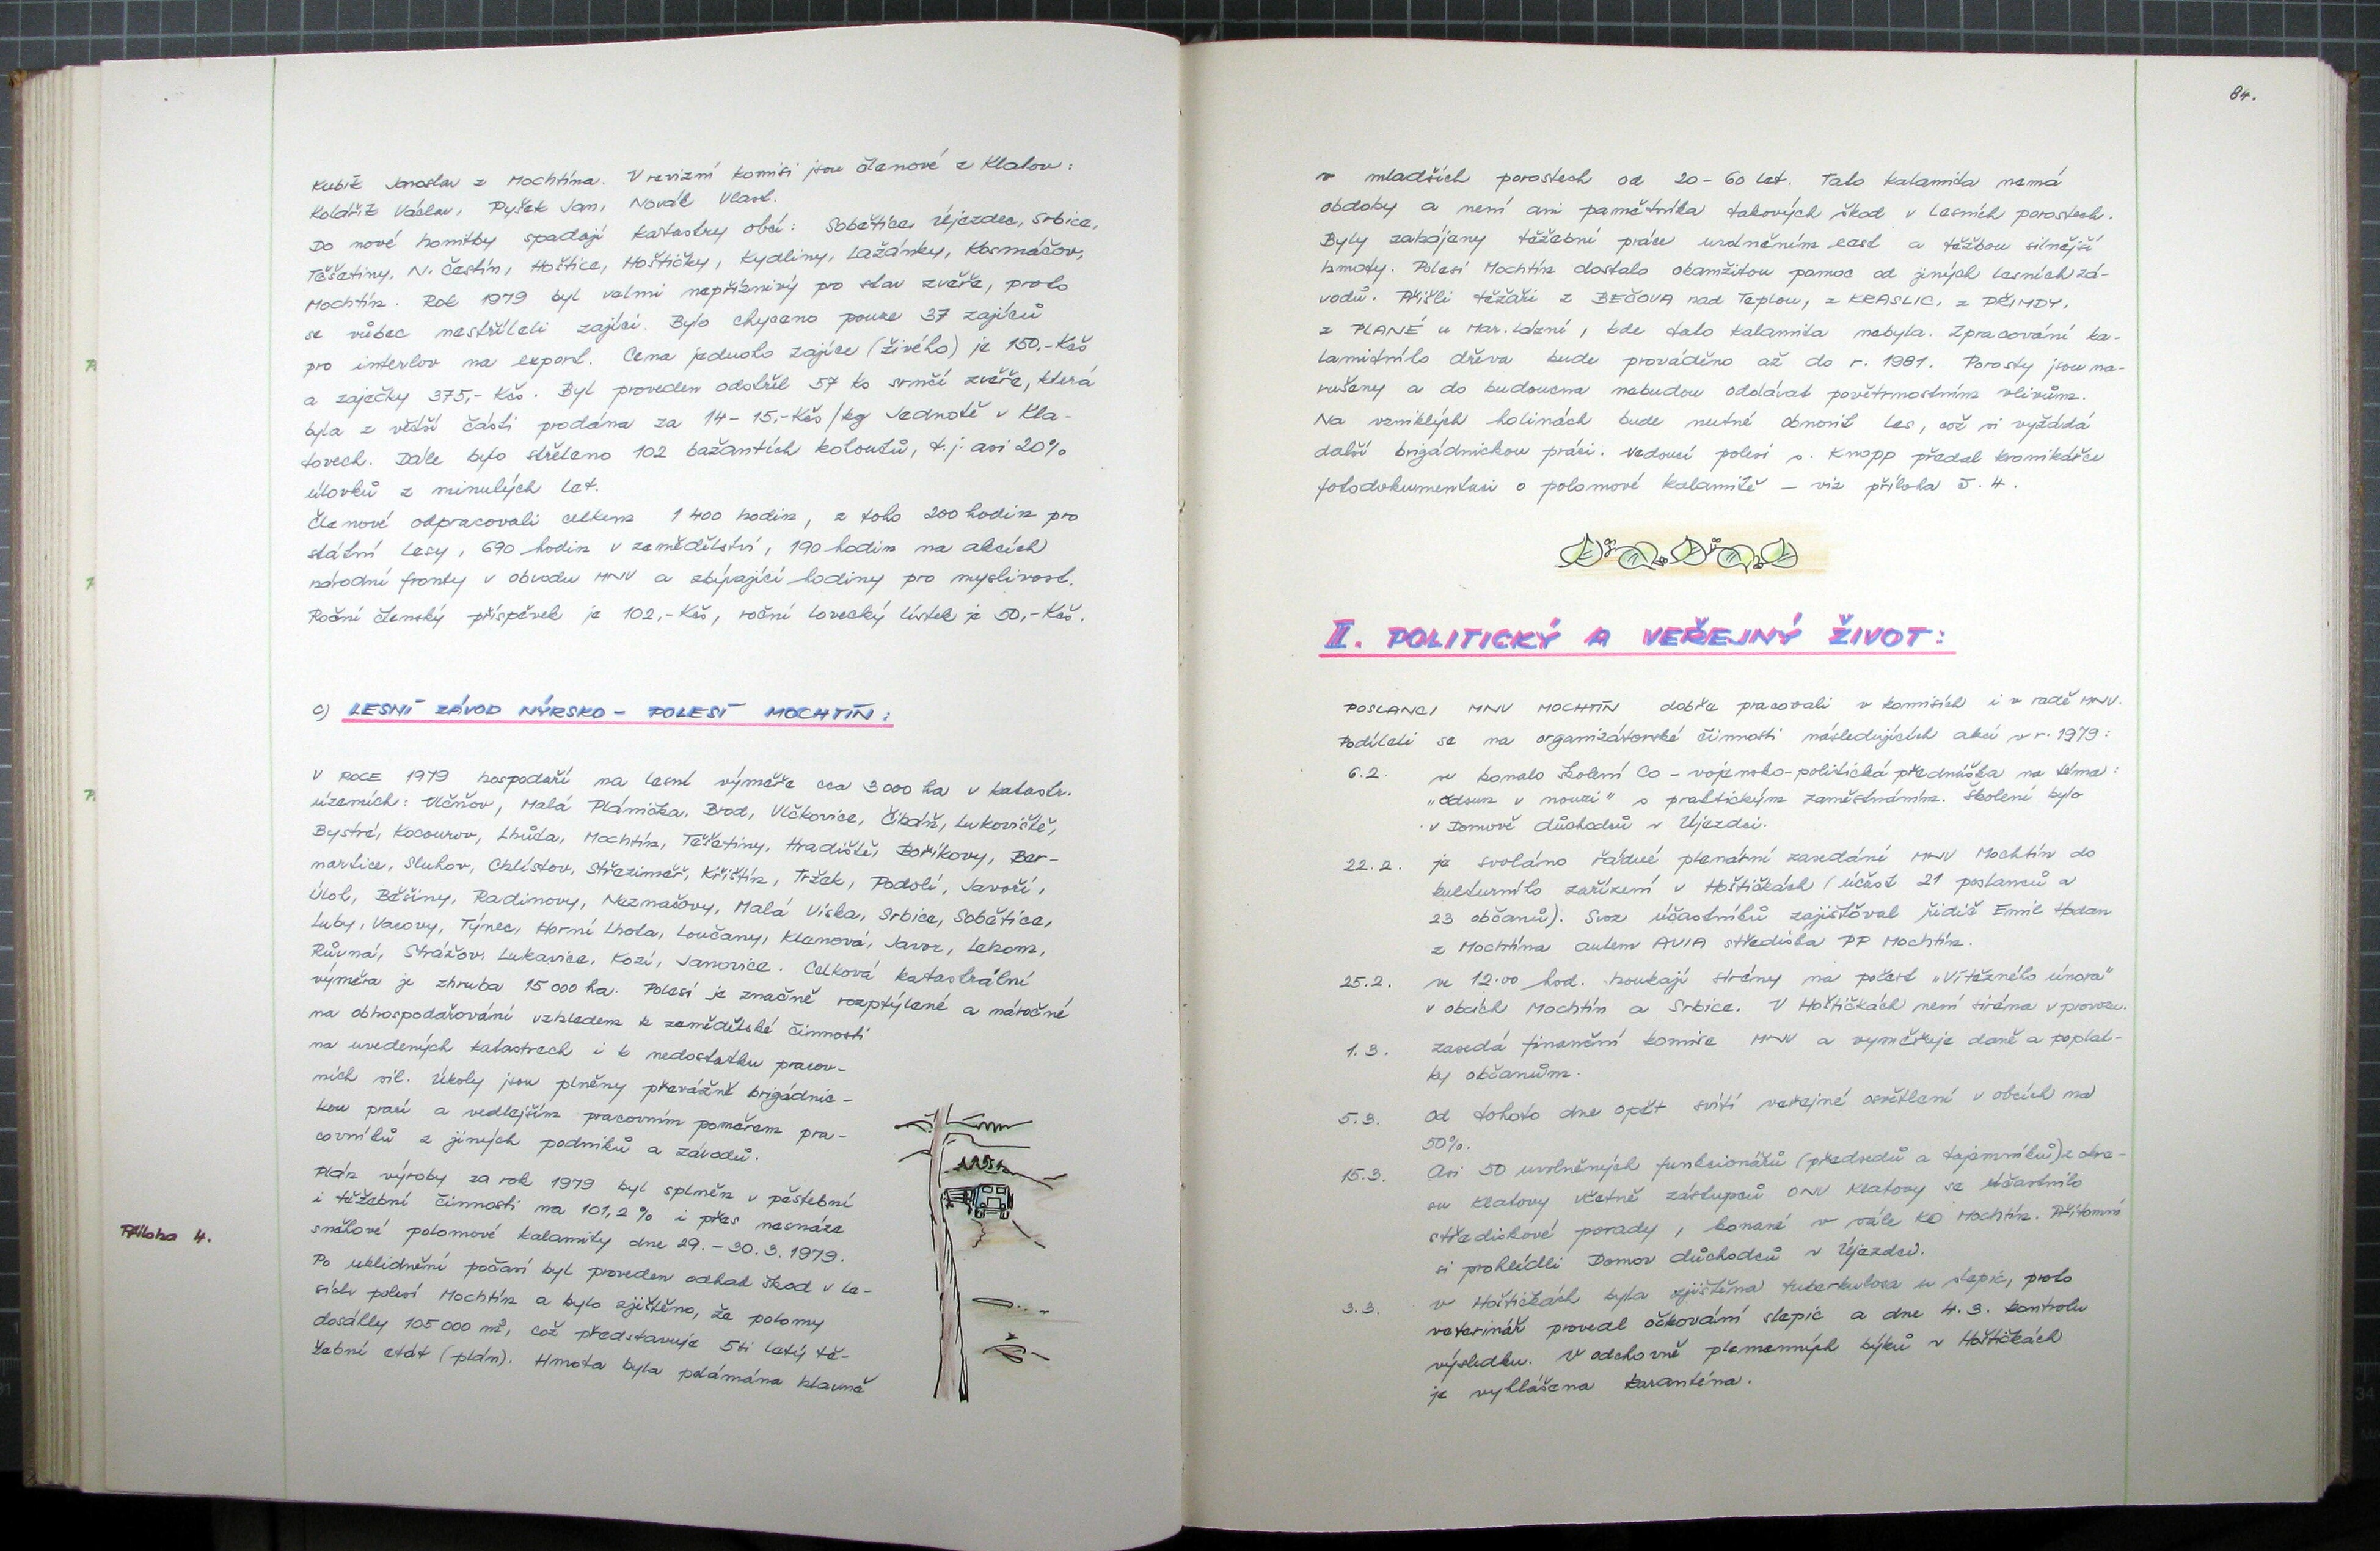 Kubík Jaroslav z Mochtína. V revizní komisi jsou členové z Klatov:
Koldřík Václav, Pyšek Jan, Novák Vlast.
Do nové honitby spadají katastry obcí: Sobětice, Újezdec, Srbice,
Těšetiny, N. Čestín, Hoštice, Hoštičky, Kydliny, Lažánky, Kosmáčov,
Mochtín. Rok 1979 byl velmi nepříznivý pro stav zvěře, proto
se vůbec nestříleli zajíci. Bylo chyceno pouze 37 zajíců
pro interlov na export. Cena jednoho zajíce (živého) je 150,-Kčs
a zaječky 375,- Kčs. Byl proveden odstřel 57 ks srnčí zvěře, která
byla z větší části prodána za 14 - 15,-Kčs/kg Jednotě v Kla-
tovech. Dále bylo střeleno 102 bažantích kohoutů, t.j. asi 20%
úlovků z minulých let.
Členové odpracovali celkem 1 400 hodin, z toho 200 hodin pro
státní lesy, 690 hodin v zemědělství, 190 hodin na akcích
národní fronty v obvodu MNV a zbývající hodiny pro myslivost.
Roční členský příspěvek je 102,-Kčs, roční lovecký lístek je 50,-Kčs.
c) LESNÍ ZÁVOD NÝRSKO - POLESÍ MOCHTÍN:
V ROCE 1979 hospodaří na lesní výměře cca 3000 ha v katastr.
územích: Vlčňov, Malá Plánička, Brod, Vlčkovice, Čibáň, Lukoviště,
Bystré, Kocourov, Lhůta, Mochtín, Těšetiny, Hradiště, Bořikovy, Ber-
nartice, Sluhov, Chlístov, Střeziměř, Křištín, Tržek, Podolí, Javoří,
Úloh, Běšiny, Radinovy, Neznašovy, Malá Víska, Srbice, Sobětice,
Luby, Vacovy, Týnec, Horní Lhota, Loučany, Klenová, Javor, Lehom,
Růvná, Strážov, Lukavice, Kozí, Janovice. Celková katastrální
výměra je zhruba 15 000 ha. Polesí je značně rozptýlené a náročné
na obhospodařování vzhledem k zemědělské činnosti
na uvedených katastrech i k nedostatku pracov-
ních sil. Úkoly jsou plněny převážně brigádnic-
kou prací a vedlejším pracovním poměrem pra-
covníků z jiných podniků a závodů.
Plán výroby za rok 1979 byl splněn v pěstební
i těžební činnosti na 101,2 % i přes nesnáze
sněhové polomové kalamity dne 29. - 30. 3. 1979.
Příloha 4.
Po uklidnění počasí byl proveden odhad škod v le-
sích polesí Mochtín a bylo zjištěno, že polomy
dosáhly 105 000 m³, což představuje 5ti letý tě-
žební etát (plán). Hmota byla polámána hlavně
84.
v mladších porostech od 20 - 60 let. Tato kalamita nemá
obdoby a není ani pamětníka takových škod v lesních porostech.
Byly zahájeny těžební práce uvolněním cest a těžbou silnější
hmoty. Polesí Mochtín dostalo okamžitou pomoc od jiných lesních zá-
vodů. Přišli těžaři z BEČOVA nad Teplou, z KRASLIC, z PŘIMDY,
z PLANÉ u Mar. Lázní, kde tato kalamita nebyla. Zpracování ka-
lamitního dřeva bude prováděno až do r. 1981. Porosty jsou na-
rušeny a do budoucna nebudou oddávat povětrnostním vlivům.
Na vzniklých holinách bude nutné obnovit les, což si vyžádá
další brigádnickou práci. Vedoucí polesí s. Knopp předal kronikářce
fotodokumentaci o polomové kalamitě - viz příloha č. 4.
II. POLITICKÝ A VEŘEJNÝ ŽIVOT:
POSLANCI MNV MOCHTÍN dobře pracovali v komisích i v radě MNV.
Podíleli se na organizátorské činnosti následujících akcí v r. 1979:
6.2. se konalo školení CO - vojensko-politická přednáška na téma:
„odsun v nouzi" s praktickým zaměstnáním. Školení bylo
v Domově důchodců v Újezdci.
22.2. je svoláno řádné plenární zasedání MNV Mochtín do
kulturního zařízení v Hoštičkách (účast 21 poslanců a
23 občanů). Svoz účastníků zajišťoval řidič Emil Hodan
z Mochtína autem AVIA střediska PP Mochtín.
25.2. ve 12.00 hod. houkají sirény na počest „Vítězného února"
v obcích Mochtín a Srbice. V Hoštičkách není siréna v provozu.
1.3. zasedá finanční komise MNV a vyměřuje daně a poplat-
ky občanům.
5.3. Od tohoto dne opět svítí veřejné osvětlení v obcích na
50%.
15.3. Asi 50 uvolněných funkcionářů (předsedů a tajemníků) z okre-
su Klatovy včetně zástupců ONV Klatovy se účastnilo
střediskové porady, konané v sále KD Mochtín. Přítomní
si prohlédli Domov důchodců v Újezdci.
3.3. V Hoštičkách byla zjištěna tuberkulosa u slepic, proto
veterinář provedl očkování slepic a dne 4.3. kontrolu
výsledku. V odchovně plemenných býků v Hoštičkách
je vyhlášena karanténa.